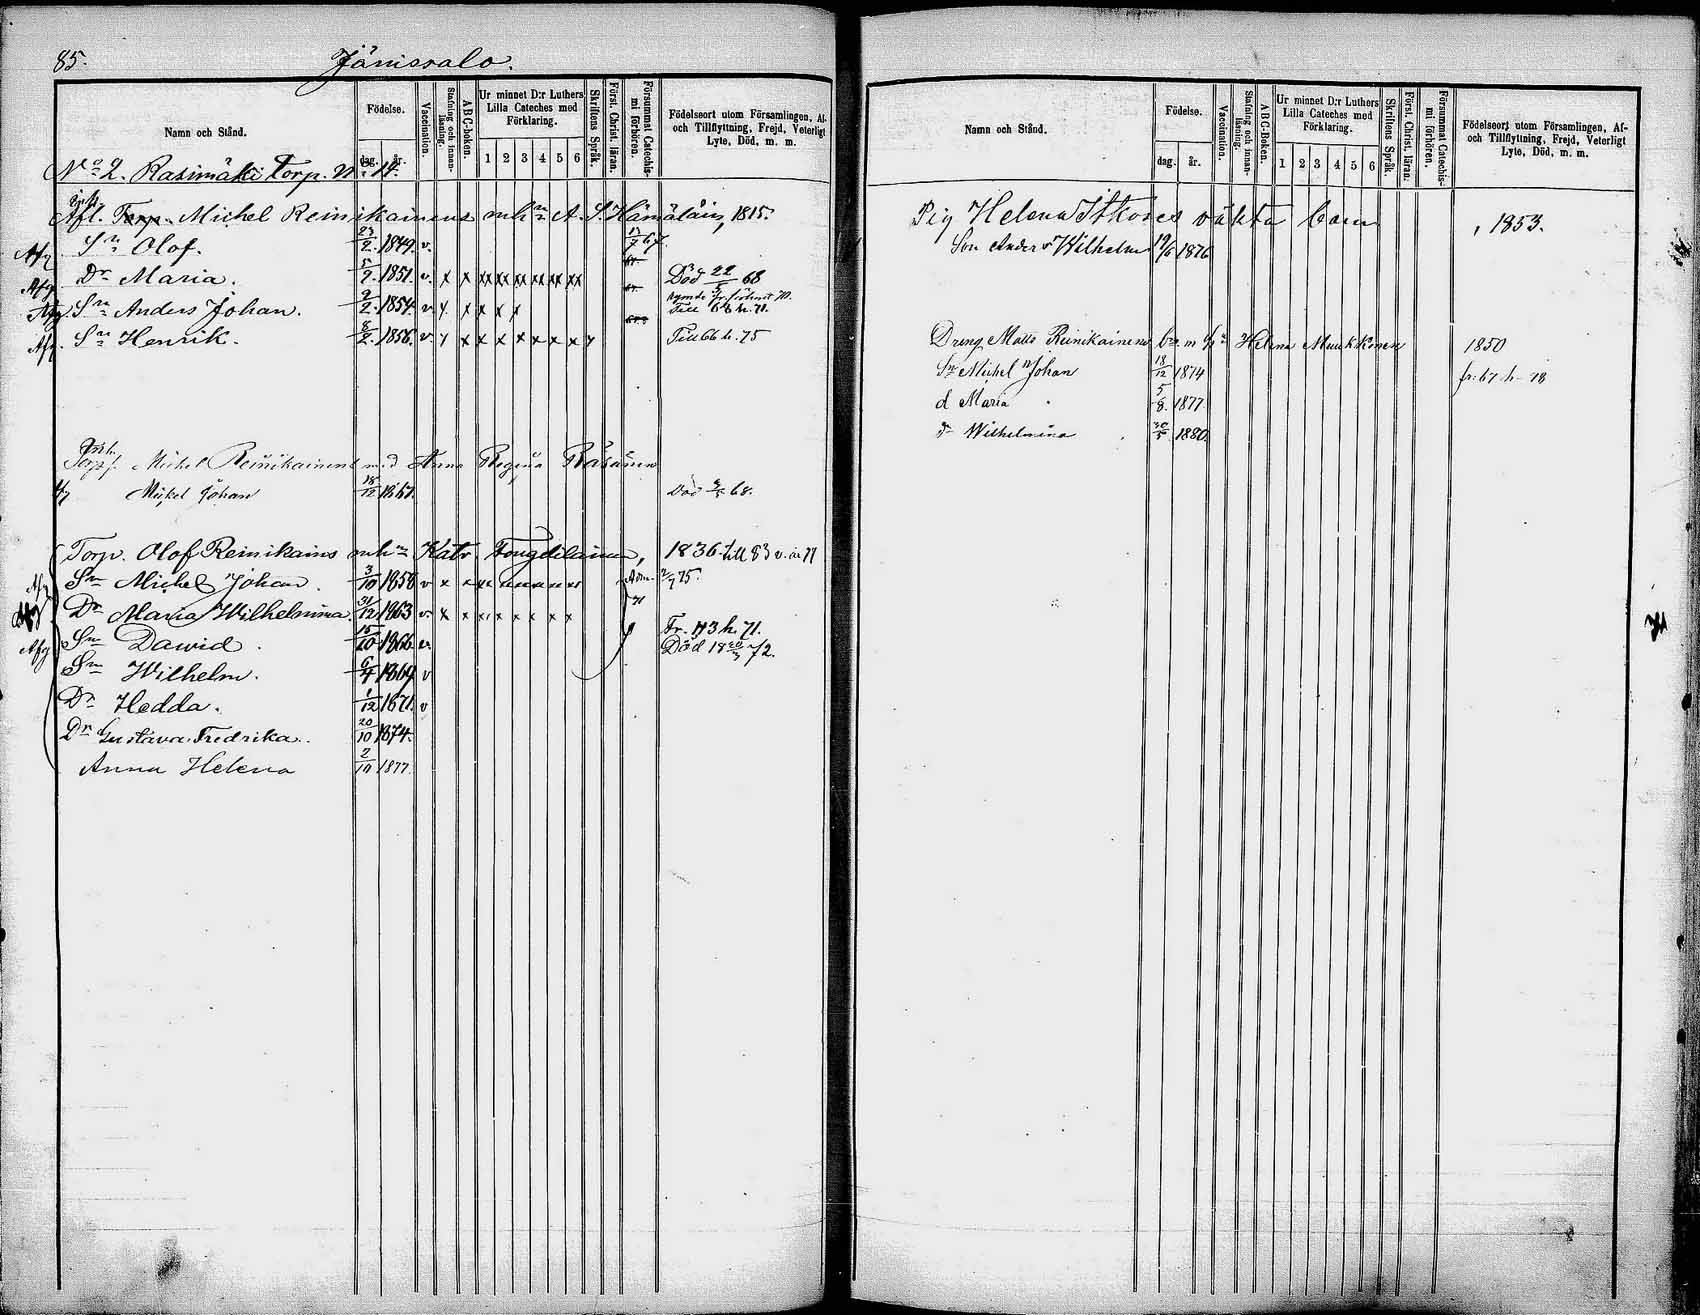 85. Jänissalo.
Namn och Stånd.
Födelse.
dag. år.
Vaccination.
Stafning och innanläsning.
ABC-boken.
Ur minnet D:r Luthers Lilla Cateches med Förklaring.
1 2 3 4 5 6
Skriftens Språk.
Först. Christ. läran.
Försummat Catechismi förhören.
Födelseort utom Församlingen, Af- och Tillflyttning, Frejd, Veterligt Lyte, Död, m. m.
No 2. Rasimäki Torp. N 14.
Afl. Torp. Michel Reinikainens enk:a A. S. Hämäläin, 1815.
Sn Olof. 23/2. 1849. v. 67.
Afg Dr Maria. 5/9. 1851. v. x x xx xx xx xx xx xx Död 22/5 68
Afg Sn Anders Johan. 9/2. 1854. v. x x x x
Till 66 h. 71.
Afg. Sn Henrik. 8/2. 1856. v. x x x x x x x x Till 66 h. 75
Torpf. Michel Reinikainens med Anna Regina Räsänen
Michel Johan 18/12 1867. Död 68.
Torp. Olof Reinikains enk:a Katr. 1836. till 83 v. år 77
Afg Sn Michel Johan. 3/10 1858 v x x xx Adm. 75.
Dr Maria Wilhelmina. 31/12 1863 v. x x x x x x x x 71
Sn Dawid. 15/10 1866 v. Fr. 113 h. 71.
Död 18 20/3 72.
Sn Wilhelm. 6/4 1869 v
Dr Hedda. 1/12 1871. v
Dr Gustava Fredrika. 20/10 1874.
Anna Helena 2/10 1877.
Namn och Stånd.
Födelse.
dag. år.
Vaccination.
Stafning och innanläsning.
ABC-Boken.
Ur minnet D:r Luthers Lilla Cateches med Förklaring.
1 2 3 4 5 6
Skriftens Språk.
Först. Christ. läran.
Försummat Catechismi förhören.
Födelseort utom Församlingen, Af- och Tillflyttning, Frejd, Veterligt Lyte, Död, m. m.
Pig Helena Itkoses oäkta barn , 1853.
Son Anders Wilhelm 19/6 1876
Dreng Matts Reinikainens Helena Muukkonen 1850
Sn Michel Johan 18/12 1874 fr. 67 h. 78
d Maria 5/8. 1877
dr Wilhelmina 30/5 1880.